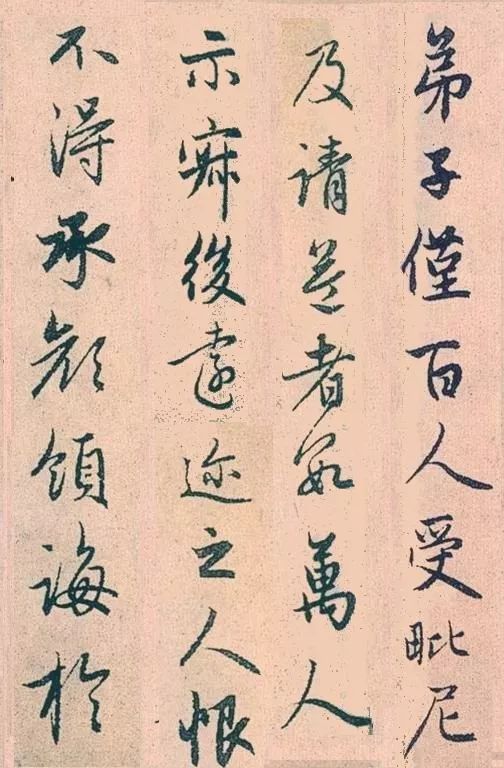 弟子僅百人受毗尼
及請益者數萬人
示寂後遠邇之人恨
不得承顏領誨於